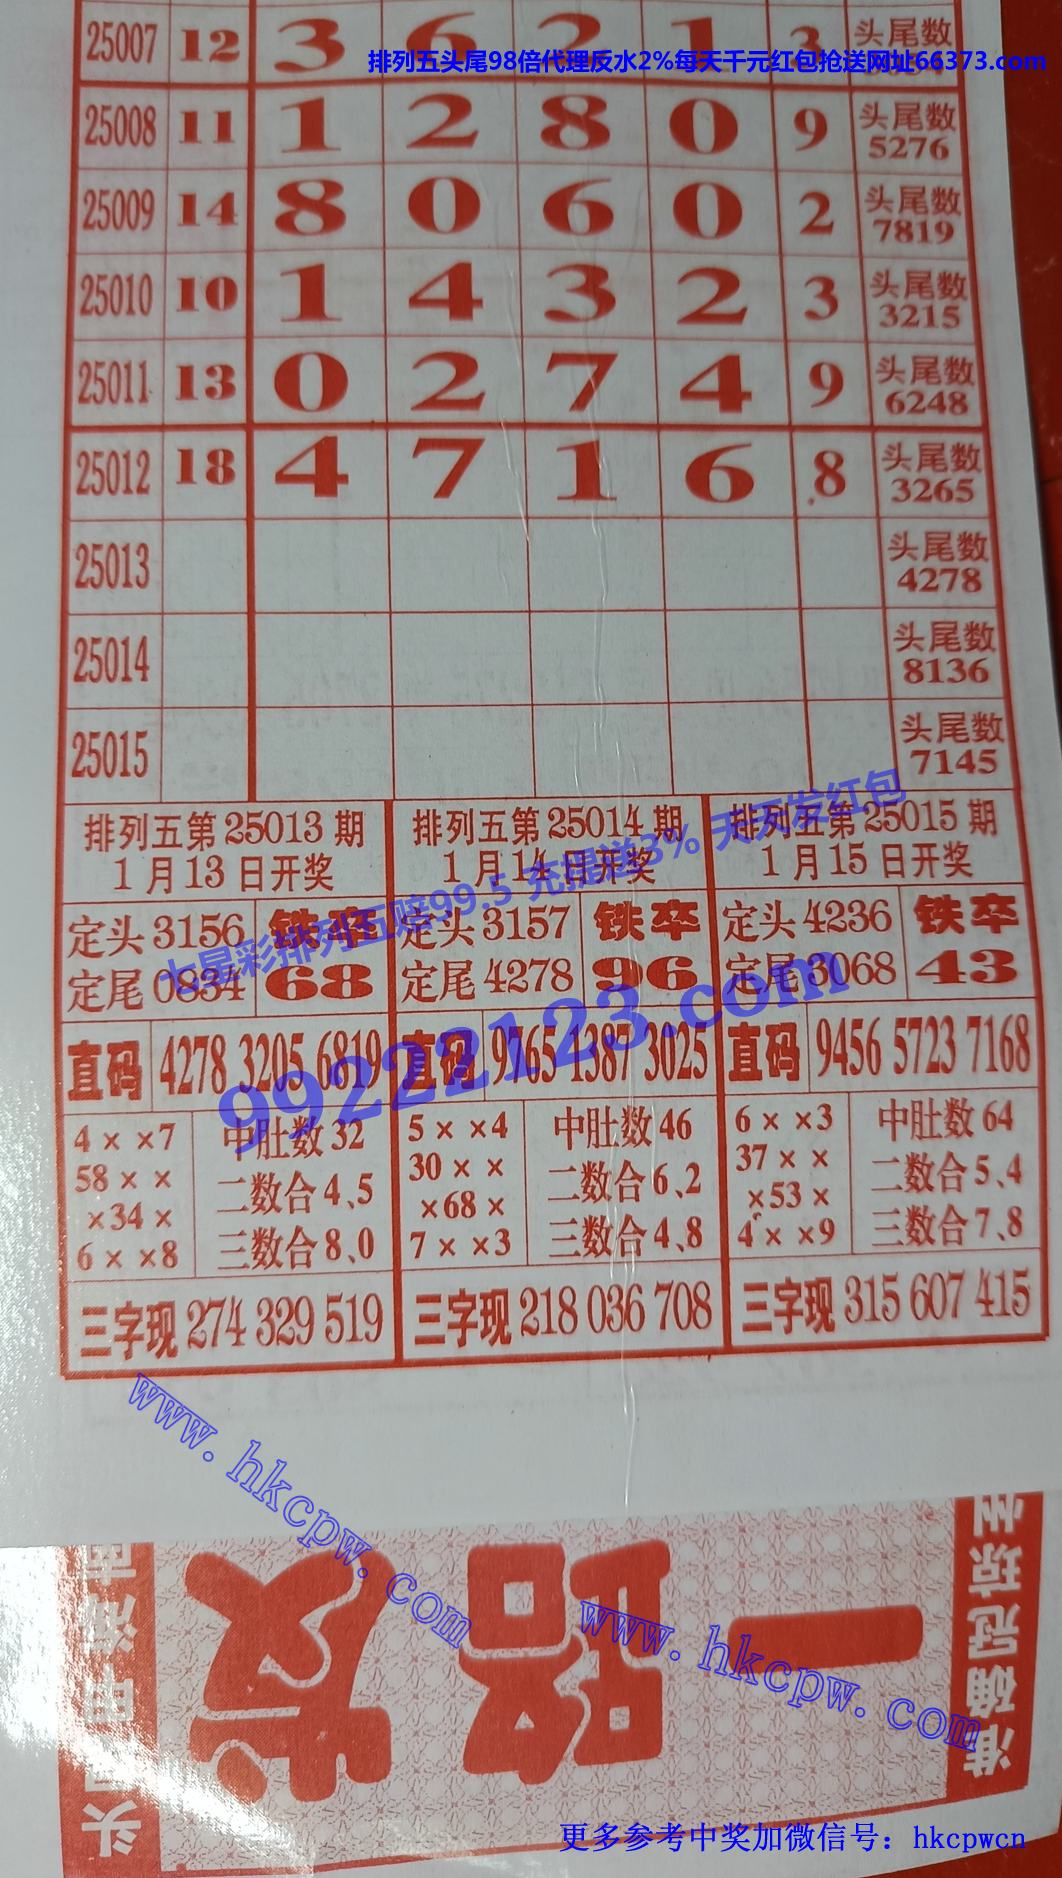 25007 12 3 6 2 1 3 头尾数
排列五头尾98倍代理反水2%每天千元红包抢送网址66373.com
25008 11 1 2 8 0 9 头尾数
5276
25009 14 8 0 6 0 2 头尾数
7819
25010 10 1 4 3 2 3 头尾数
3215
25011 13 0 2 7 4 9 头尾数
6248
25012 18 4 7 1 6 8 头尾数
3265
25013 头尾数
4278
25014 头尾数
8136
25015 头尾数
7145
排列五第25013期
1月13日开奖
定头3156 铁卒
定尾0834 68
直码 4278 3205 6819
4××7 中肚数32
58×× 二数合4、5
×34×
6××8 三数合8、0
三字现 274 329 519
排列五第25014期
1月14日开奖
定头3157 铁卒
定尾4278 96
直码 9765 1387 3025
5××4 中肚数46
30×× 二数合6、2
×68×
7××3 三数合4、8
三字现 218 036 708
排列五第25015期
1月15日开奖
定头4236 铁卒
定尾3068 43
直码 9456 5723 7168
6××3 中肚数64
37×× 二数合5、4
×53×
4××9 三数合7、8
三字现 315 607 415
七星彩排列五赔99.5 充提送3% 天天发红包
99222123.com
www.hkcpw.com
www.hkcpw.com
一路发
准确冠琼州
更多参考中奖加微信号：hkcpwcn